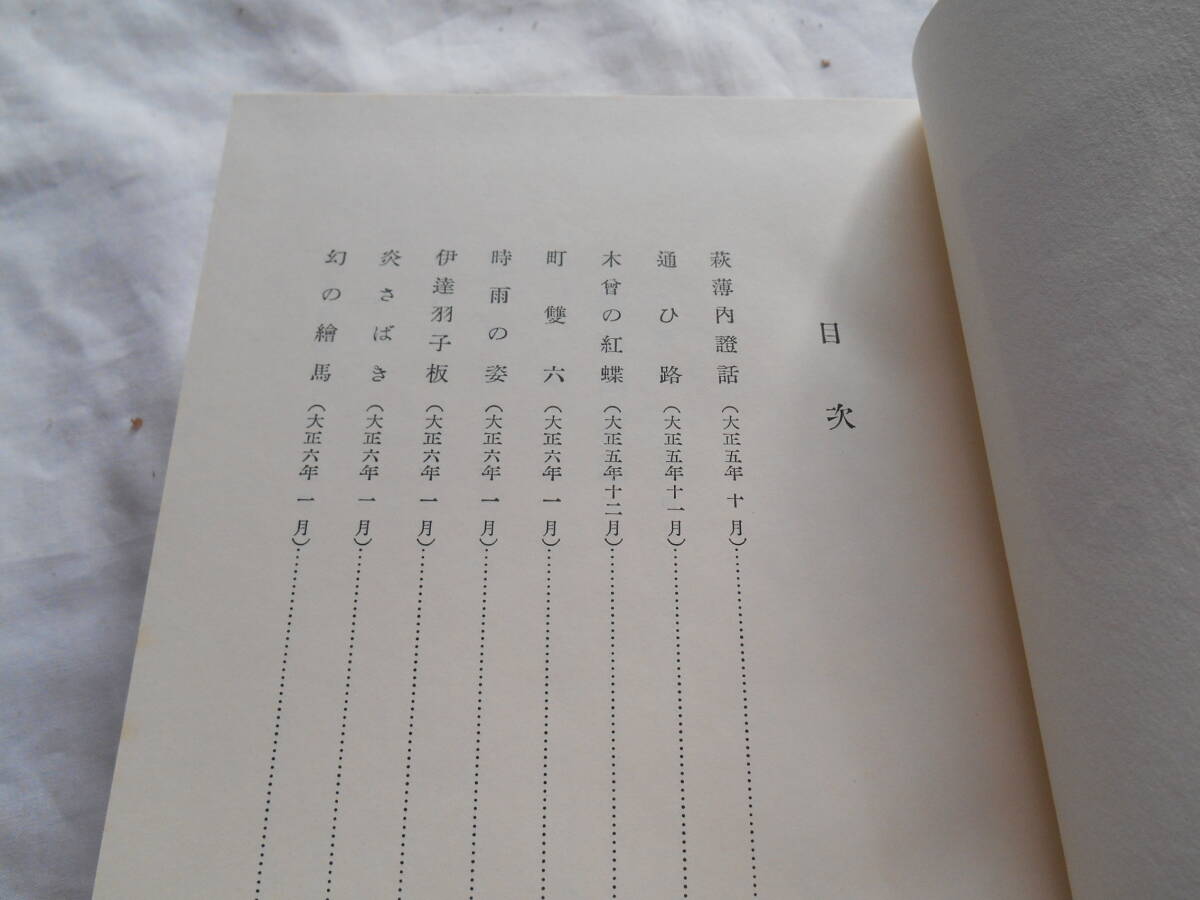 目次
萩薄内證話(大正五年十月)
通ひ路(大正五年十一月)
木曾の紅蝶(大正五年十二月)
町雙六(大正六年一月)
時雨の姿(大正六年一月)
伊達羽子板(大正六年一月)
炎さばき(大正六年一月)
幻の繪馬(大正六年一月)